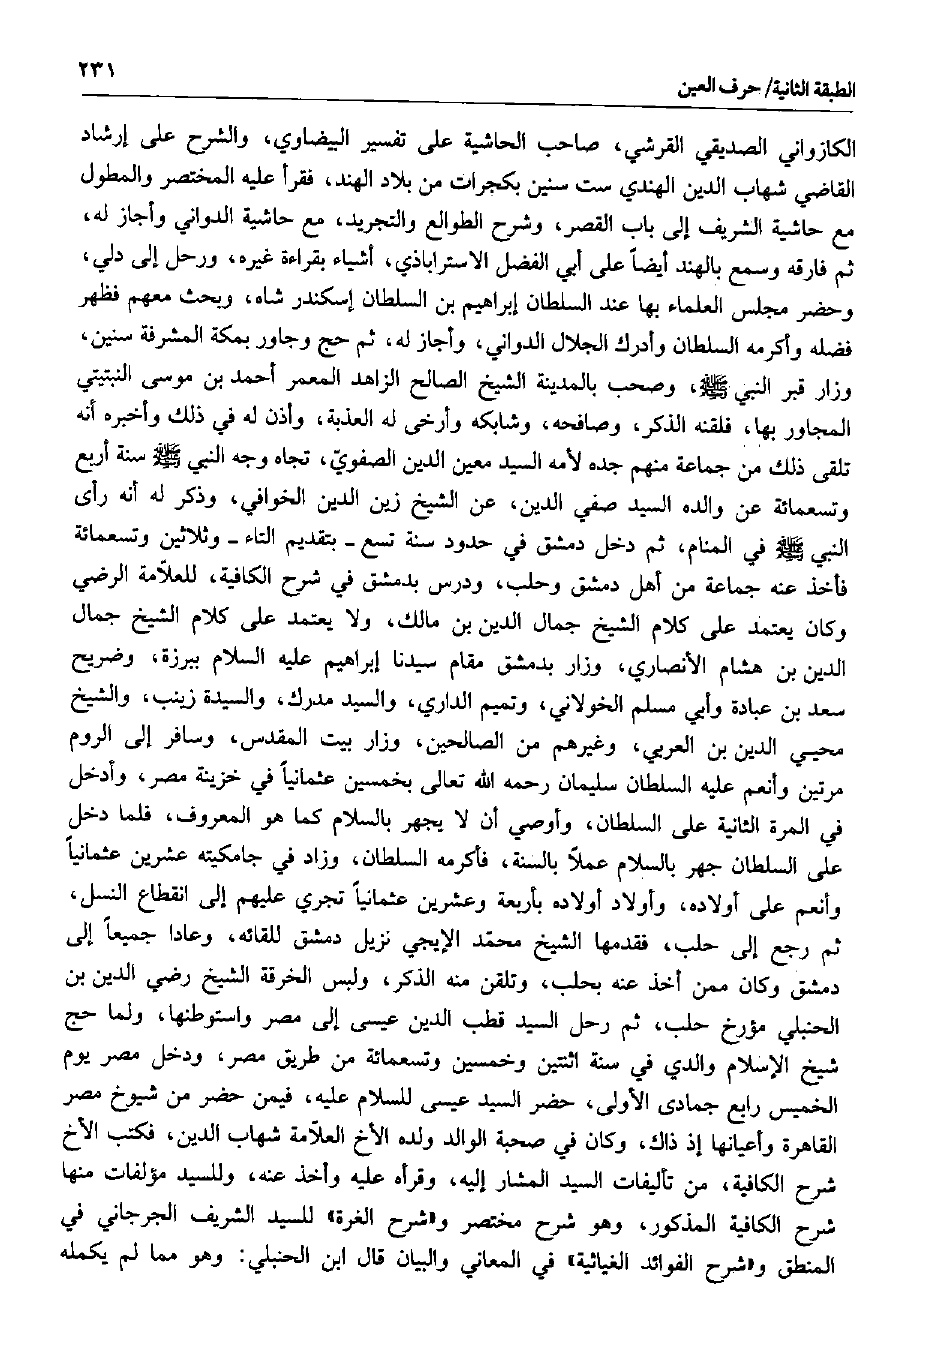 ٢٣١
الطبقة الثانية/ حرف العين
الكازواني الصديقي القرشي، صاحب الحاشية على تفسير البيضاوي، والشرح على إرشاد
القاضي شهاب الدين الهندي ست سنين بكجرات من بلاد الهند، فقرأ عليه المختصر والمطول
مع حاشية الشريف إلى باب القصر، وشرح الطوالع والتجريد، مع حاشية الدواني وأجاز له،
ثم فارقه وسمع بالهند أيضاً على أبي الفضل الاستراباذي، أشياء بقراءة غيره، ورحل إلى دلي،
وحضر مجلس العلماء بها عند السلطان إبراهيم بن السلطان إسكندر شاه، وبحث معهم فظهر
فضله وأكرمه السلطان وأدرك الجلال الدواني، وأجاز له، ثم حج وجاور بمكة المشرفة سنين،
وزار قبر النبي ﷺ، وصحب بالمدينة الشيخ الصالح الزاهد المعمر أحمد بن موسى النبتيتي
المجاور بها، فلقنه الذكر، وصافحه، وشابكه وأرخى له العذبة، وأذن له في ذلك وأخبره أنه
تلقى ذلك من جماعة منهم جده لأمه السيد معين الدين الصفويّ، تجاه وجه النبي ﷺ سنة أربع
وتسعمائة عن والده السيد صفي الدين، عن الشيخ زين الدين الخوافي، وذكر له أنه رأى
النبي ﷺ في المنام، ثم دخل دمشق في حدود سنة تسع ـ بتقديم التاء ـ وثلاثين وتسعمائة
فأخذ عنه جماعة من أهل دمشق وحلب، ودرس بدمشق في شرح الكافية، للعلاّمة الرضي
وكان يعتمد على كلام الشيخ جمال الدين بن مالك، ولا يعتمد على كلام الشيخ جمال
الدين بن هشام الأنصاري، وزار بدمشق مقام سيدنا إبراهيم عليه السلام ببرزة، وضريح
سعد بن عبادة وأبي مسلم الخولاني، وتميم الداري، والسيد مدرك، والسيدة زينب، والشيخ
محيي الدين بن العربي، وغيرهم من الصالحين، وزار بيت المقدس، وسافر إلى الروم
مرتين وأنعم عليه السلطان سليمان رحمه الله تعالى بخمسين عثمانياً في خزينة مصر، وأدخل
في المرة الثانية على السلطان، وأوصي أن لا يجهر بالسلام كما هو المعروف، فلما دخل
على السلطان جهر بالسلام عملاً بالسنة، فأكرمه السلطان، وزاد في جامكيته عشرين عثمانياً
وأنعم على أولاده، وأولاد أولاده بأربعة وعشرين عثمانياً تجري عليهم إلى انقطاع النسل،
ثم رجع إلى حلب، فقدمها الشيخ محمّد الإيجي نزيل دمشق للقائه، وعادا جميعاً إلى
دمشق وكان ممن أخذ عنه بحلب، وتلقن منه الذكر، ولبس الخرقة الشيخ رضي الدين بن
الحنبلي مؤرخ حلب، ثم رحل السيد قطب الدين عيسى إلى مصر واستوطنها، ولما حج
شيخ الإسلام والدي في سنة اثنتين وخمسين وتسعمائة من طريق مصر، ودخل مصر يوم
الخميس رابع جمادى الأولى، حضر السيد عيسى للسلام عليه، فيمن حضر من شيوخ مصر
القاهرة وأعيانها إذ ذاك، وكان في صحبة الوالد ولده الأخ العلاّمة شهاب الدين، فكتب الأخ
شرح الكافية، من تأليفات السيد المشار إليه، وقرأه عليه وأخذ عنه، وللسيد مؤلفات منها
شرح الكافية المذكور، وهو شرح مختصر و«شرح الغرة» للسيد الشريف الجرجاني في
المنطق و«شرح الفوائد الغياثية» في المعاني والبيان قال ابن الحنبلي: وهو مما لم يكمله